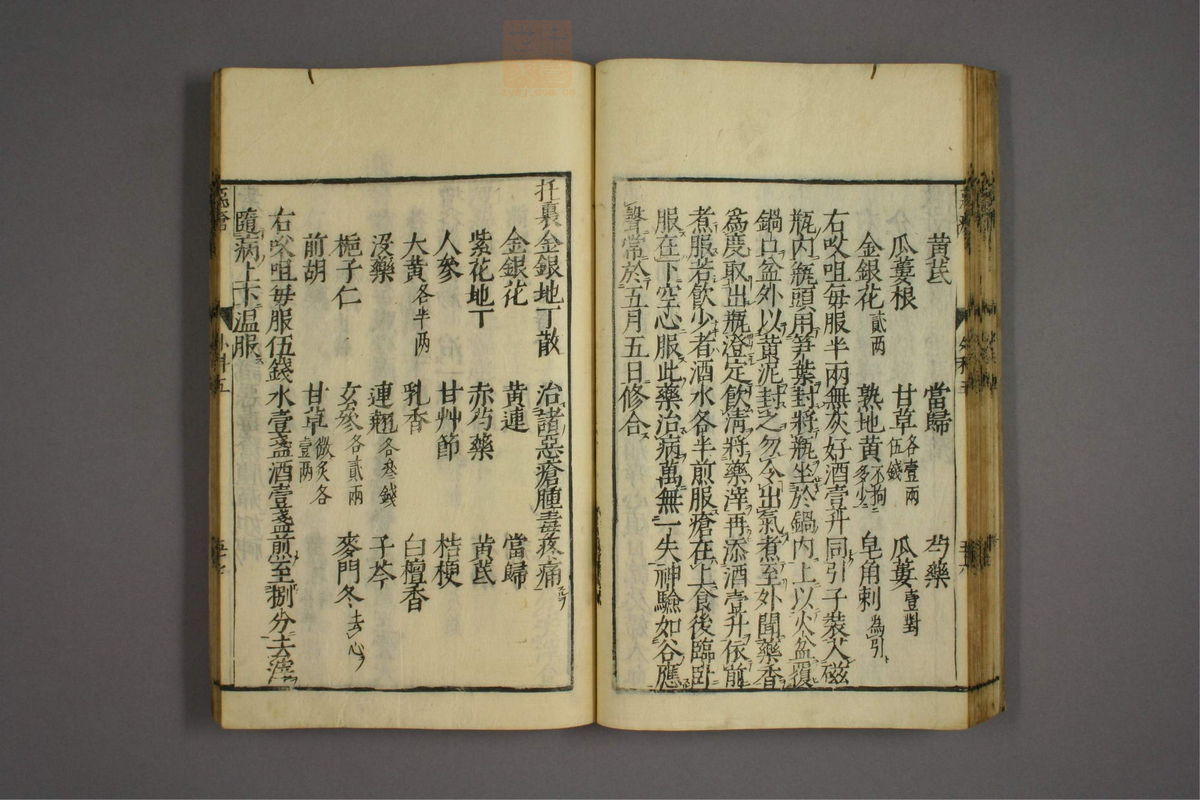 黃芪　當歸　芍藥
瓜蔞根　甘草各壹兩伍錢　瓜蔞壹對
金銀花貳兩　熟地黃不拘多少　皂角刺為引
右㕮咀每服半兩無灰好酒壹升同引子裝入磁
瓶内瓶頭用笋葉封將瓶坐於鍋内上以火盆覆
鍋口盆外以黃泥封之勿令出氣煮至外聞藥香
為度取出瓶澄定飲淸將藥滓再添酒壹升依前
煮服若飲少者酒水各半煎服瘡在上食後臨臥
服在下空心服此藥治病萬無一失神驗如谷應
聲常於五月五日修合
托裏金銀地丁散　治諸惡瘡腫毒疼痛
金銀花　黃連　當歸
紫花地丁　赤芍藥　黃芪
人參　甘艸節　桔梗
大黃各半两　乳香　白檀香
沒藥　連翹各叄錢　子芩
梔子仁　玄參各貳兩　麥門冬去心
前胡　甘草微炙各壹两
右㕮咀毎服伍錢水壹盞酒壹盞煎至捌分去滓
隨病上下温服